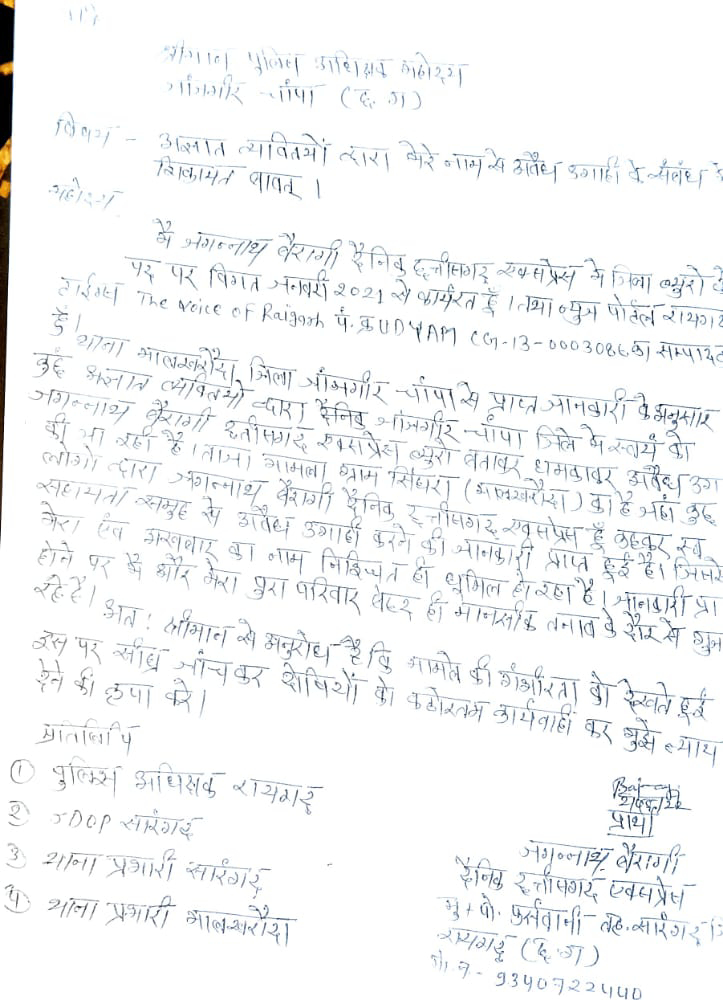 प्रति
श्रीमान पुलिस अधिक्षक महोदय
जांजगीर चांपा (छ.ग)
विषय - अज्ञात व्यक्तियों द्वारा मेरे नाम से अवैध उगाही के संबंध में
शिकायत बावत् ।
महोदय
मै जगन्नाथ बैरागी दैनिक छत्तीसगढ़ एक्सप्रेस मे जिला ब्युरो के
पद पर विगत जनवरी 2021 से कार्यरत हूँ । तथा न्युज पोर्टल रायगढ़
टाईम्स The voice of Raigarh पं. क्र UDYAM CG-13-0003086 का सम्पादक
हूँ ।
थाना मालखरौदा, जिला जांजगीर चांपा से प्राप्त जानकारी के अनुसार
कुछ अज्ञात व्यक्तियो द्वारा दैनिक जांजगीर-चांपा जिले मे स्वयं को
जगन्नाथ बैरागी छत्तीसगढ़ एक्सप्रेस ब्युरो बताकर धमकाकर अवैध उगा
की जा रही है । ताजा मामला ग्राम सिंघरा (मालखरौदा) का है जहां कुछ
लोगो द्वारा जगन्नाथ बैरागी दैनिक छत्तीसगढ़ एक्सप्रेस हूँ कहकर स्व
सहायता समुह से अवैध उगाही करने की जानकारी प्राप्त हुई है । जिससे
मेरा एंव अखबार का नाम निश्चित ही धुमिल हो रहा है । जानकारी प्रा
होने पर मै और मेरा पुरा परिवार बेहद ही मानसीक तनाव के दौर से गुज
रहे है ।
अतः श्रीमान से अनुरोध है कि मामले की गंभीरता को देखते हुई
इस पर सीघ्र जांच कर दोषियों को कठोरतम कार्यवाही कर मुझे न्याय
देने की कृपा करे ।
प्रतिलिपि
① पुलिस अधिक्षक रायगढ़
② SDOP सारंगढ़
③ थाना प्रभारी सारंगढ़
④ थाना प्रभारी मालखरौदा
प्रार्थी
जगन्नाथ बैरागी
दैनिक छत्तीसगढ़ एक्सप्रेस
मु + पो. फुर्सवानी तह. सारंगढ़ जि
रायगढ़ (छ.ग)
मो. न - 9340722440